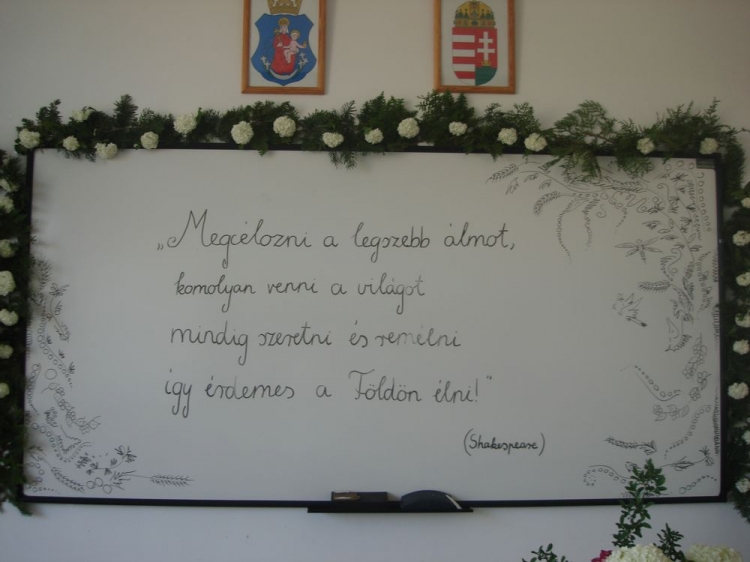 „Megcélozni a legszebb álmot,
komolyan venni a világot
mindig szeretni és remélni
így érdemes a Földön élni!"
(Shakespeare)